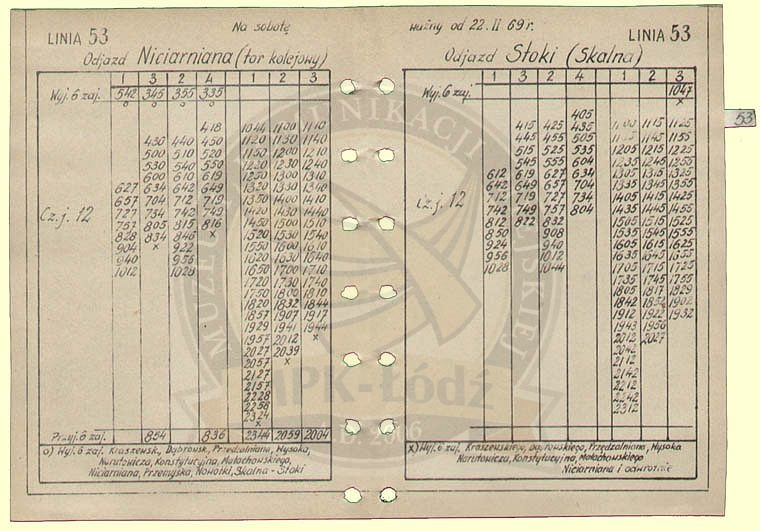 LINIA 53 Na sobotę
Odjazd Niciarniana (tor kolejowy)
1 3 2 4 1 2 3
Wyj. 6 zaj. 542 345 355 335
o o o o
418 1044 1100 1110
430 440 450 1120 1130 1140
500 510 520 1150 1200 1210
530 540 550 1220 1230 1240
600 610 619 1250 1300 1310
627 634 642 649 1320 1330 1340
657 704 712 719 1350 1400 1410
727 734 742 749 1420 1430 1440
Cz.j. 12
757 805 815 816 1450 1500 1510
828 834 846 x 1520 1530 1540
904 x 922 1550 1600 1610
940 956 1620 1630 1640
1012 1028 1650 1700 1710
1720 1730 1740
1750 1800 1810
1820 1832 1844
1857 1907 1917
1929 1941 1944
1957 2012 x
2027 2039
2057 x
2127
2157
2228
2258
2324
x
Przyj. 6 zaj. 854 836 2344 2059 2004
o) Wyj. 6 zaj. Kraszewsk, Dąbrowsk, Przędzalniana, Wysoka,
Narutowicza, Konstytucyjna, Małachowskiego,
Niciarniana, Przemyska, Nowotki, Skalna - Stoki
ważny od 22. II 69 r. LINIA 53
Odjazd Stoki (Skalna)
1 3 2 4 1 2 3
Wyj. 6 zaj. 1047
x
405
415 425 435 1100 1115 1125
445 455 505 1145 1155
515 525 535 1205 1215 1225
545 555 604 1235 1245 1255
612 619 627 634 1305 1315 1325
642 649 657 704 1335 1345 1355
712 719 727 734 1405 1415 1425
Cz.j. 12
742 749 757 804 1435 1445 1455
812 822 832 1505 1515 1525
850 908 1535 1545 1555
924 940 1605 1615 1625
956 1012 1635 1645 1655
1028 1044 1705 1715 1725
1735 1745 1755
1805 1829
1842 1852 1902
1912 1922 1932
1943 1956
2012 2027
2042
2112
2142
2212
2242
2312
x) Wyj. 6 zaj. Kraszewskiego, Dąbrowskiego, Przędzalniana, Wysoka
Narutowicza, Konstytucyjna, Małachowskiego
Niciarniana i odwrotnie
53
MUZEUM KOMUNIKACJI MIEJSKIEJ
MPK-Łódź
2006